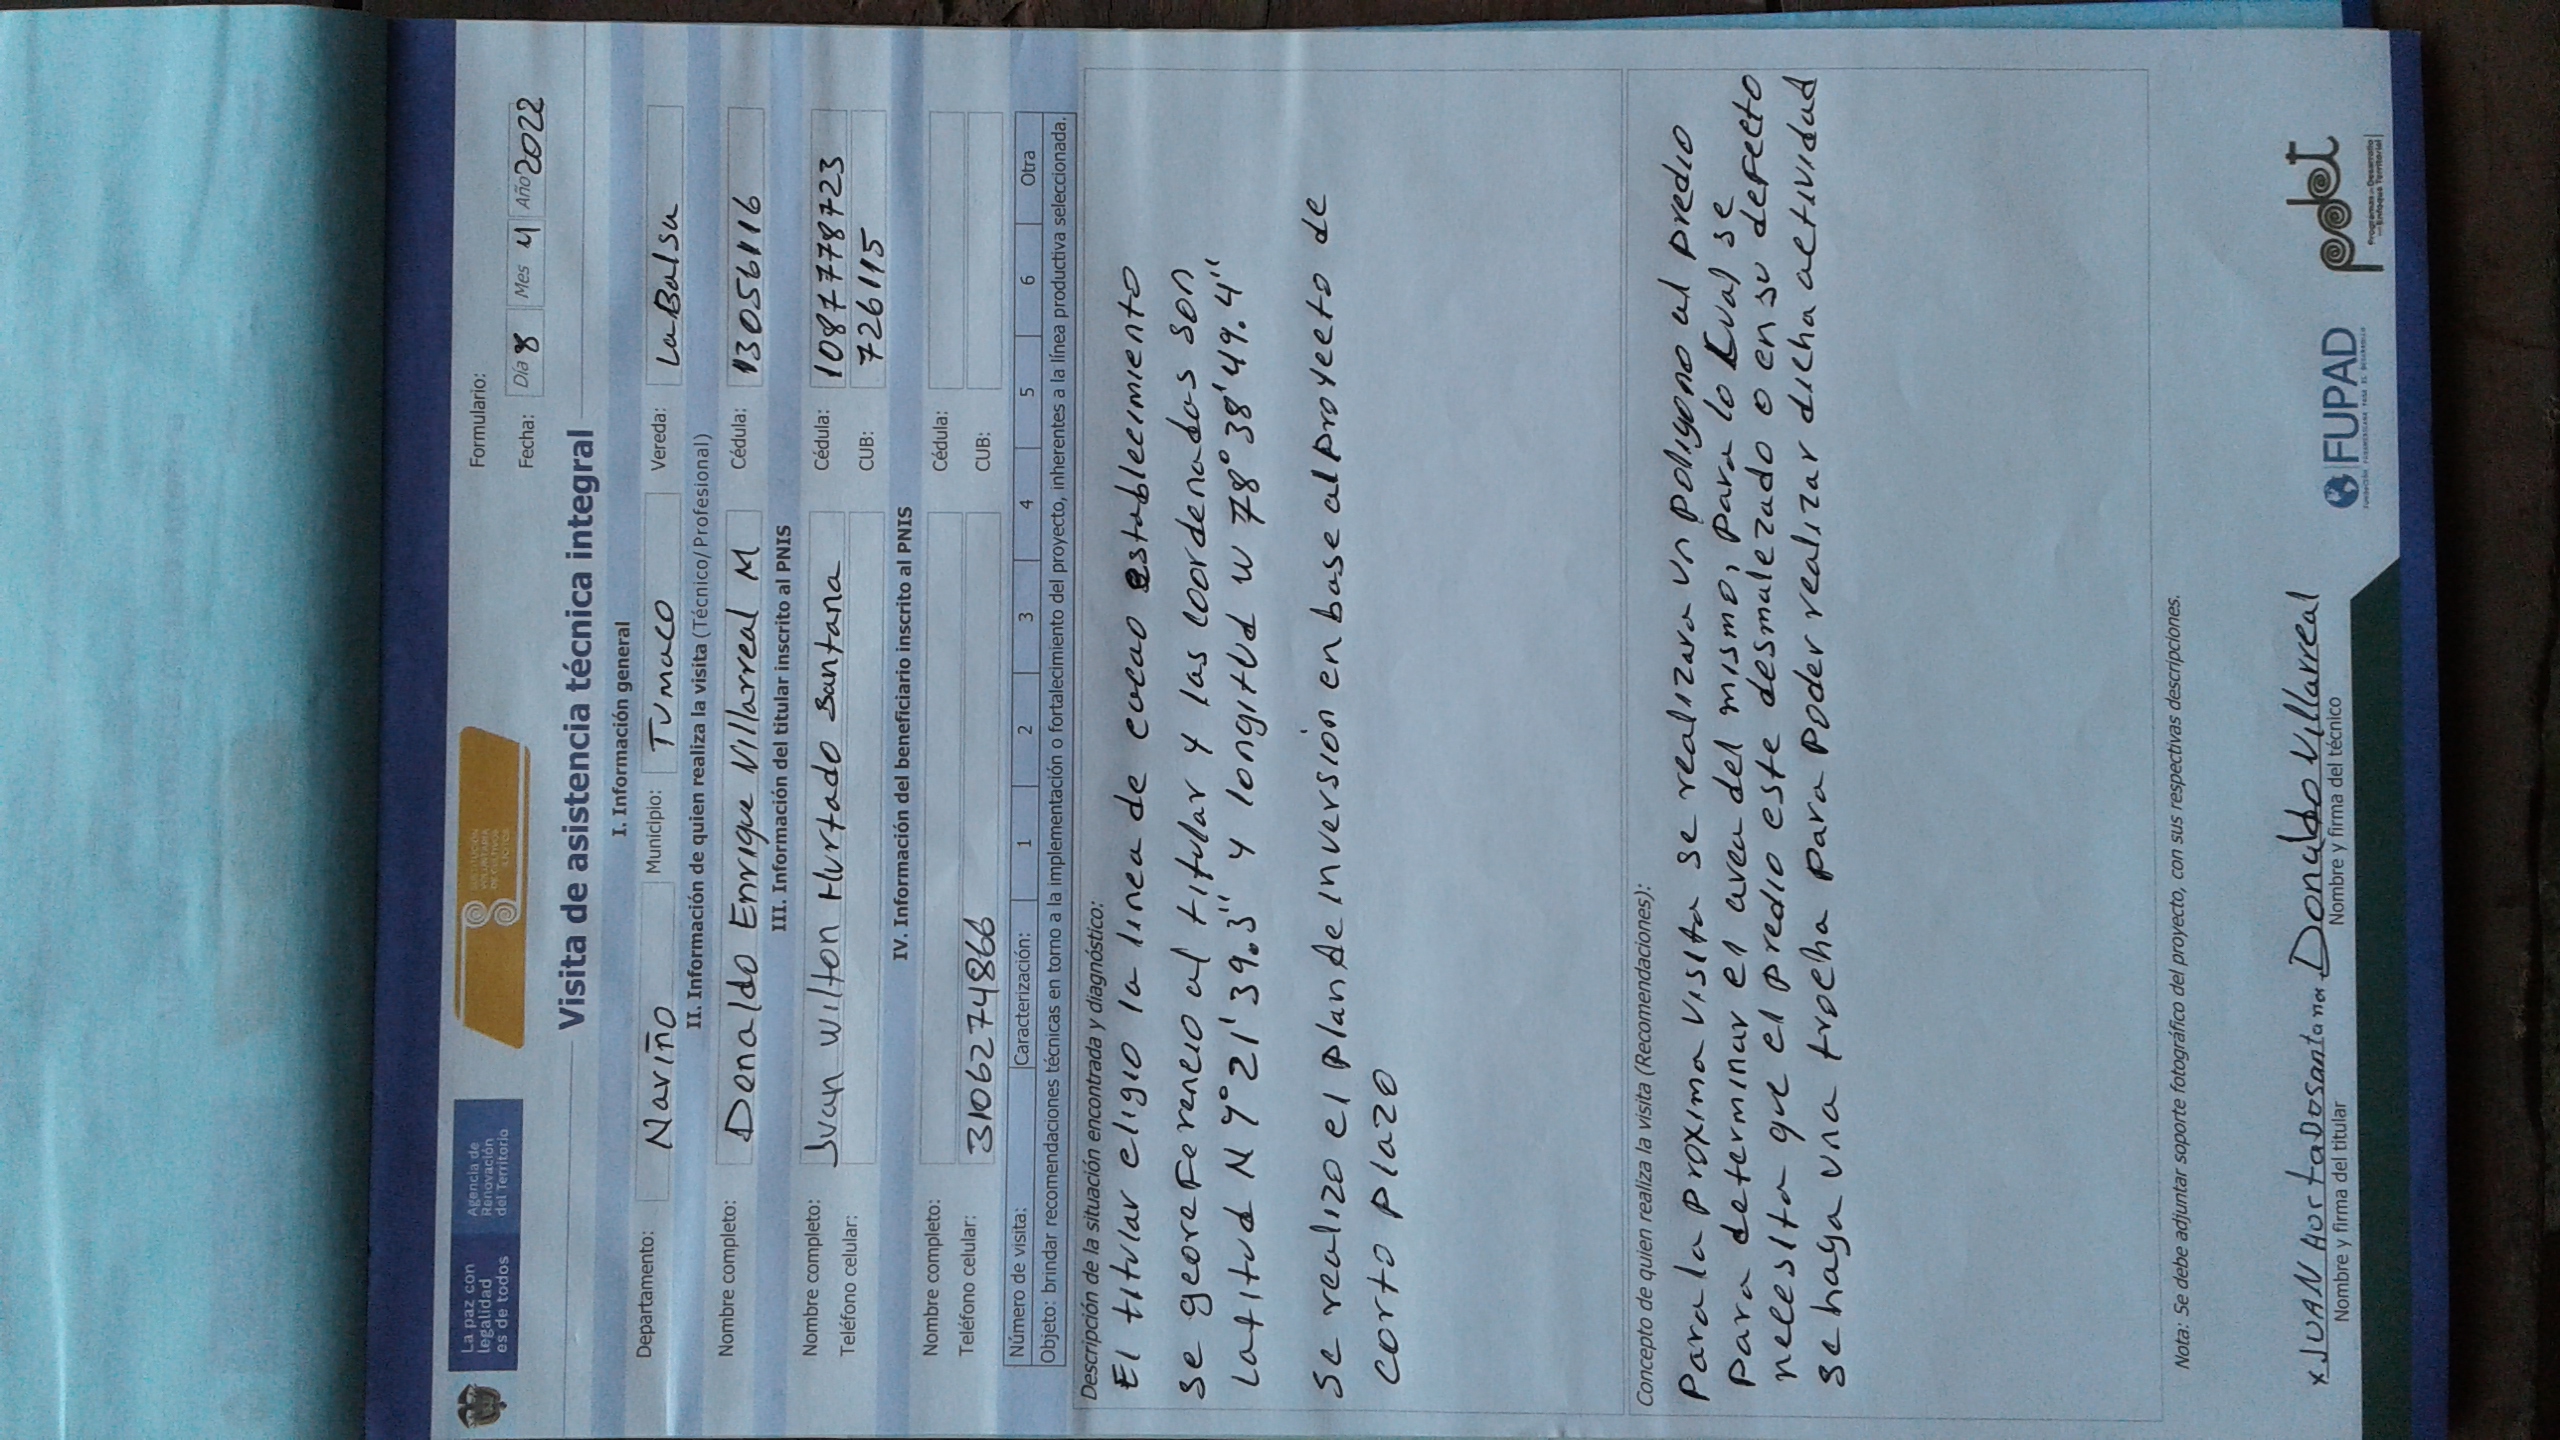 La paz con
legalidad
es de todos
Agencia de
Renovación
del Territorio
SUSTITUCIÓN
VOLUNTARIA
DE CULTIVOS
ILÍCITOS
Formulario:
Fecha: Día 8 Mes 4 Año 2022
Visita de asistencia técnica integral
I. Información general
Departamento: Nariño Municipio: Tumaco Vereda: La Balsa
II. Información de quien realiza la visita (Técnico/Profesional)
Nombre completo: Donaldo Enrique Villarreal M Cédula: 13056116
III. Información del titular inscrito al PNIS
Nombre completo: Juan Wilton Hurtado Santana Cédula: 1087778723
Teléfono celular: CUB: 726115
IV. Información del beneficiario inscrito al PNIS
Nombre completo: Cédula:
Teléfono celular: 3106274866 CUB:
Número de visita: Caracterización: 1 2 3 4 5 6 Otra
Objeto: brindar recomendaciones técnicas en torno a la implementación o fortalecimiento del proyecto, inherentes a la línea productiva seleccionada.
Descripción de la situación encontrada y diagnóstico:
El titular eligio la linea de cacao establecimiento
se georeferencio al titular y las coordenadas son
Latitud N 4° 21' 39.3" y longitud W 78° 38' 49.4"
Se realizo el plan de inversion en base al proyecto de
corto plazo
Concepto de quien realiza la visita (Recomendaciones):
Para la proxima visita se realizara un poligono al predio
para determinar el area del mismo, para lo cual se
necesita que el predio este desmalezado o en su defecto
se haga una trocha para poder realizar dicha actividad
Nota: Se debe adjuntar soporte fotográfico del proyecto, con sus respectivas descripciones.
x JUAN HurtaDo Santana Donaldo Villarreal
Nombre y firma del titular Nombre y firma del técnico
FUPAD
pdet
Programas de Desarrollo
con Enfoque Territorial